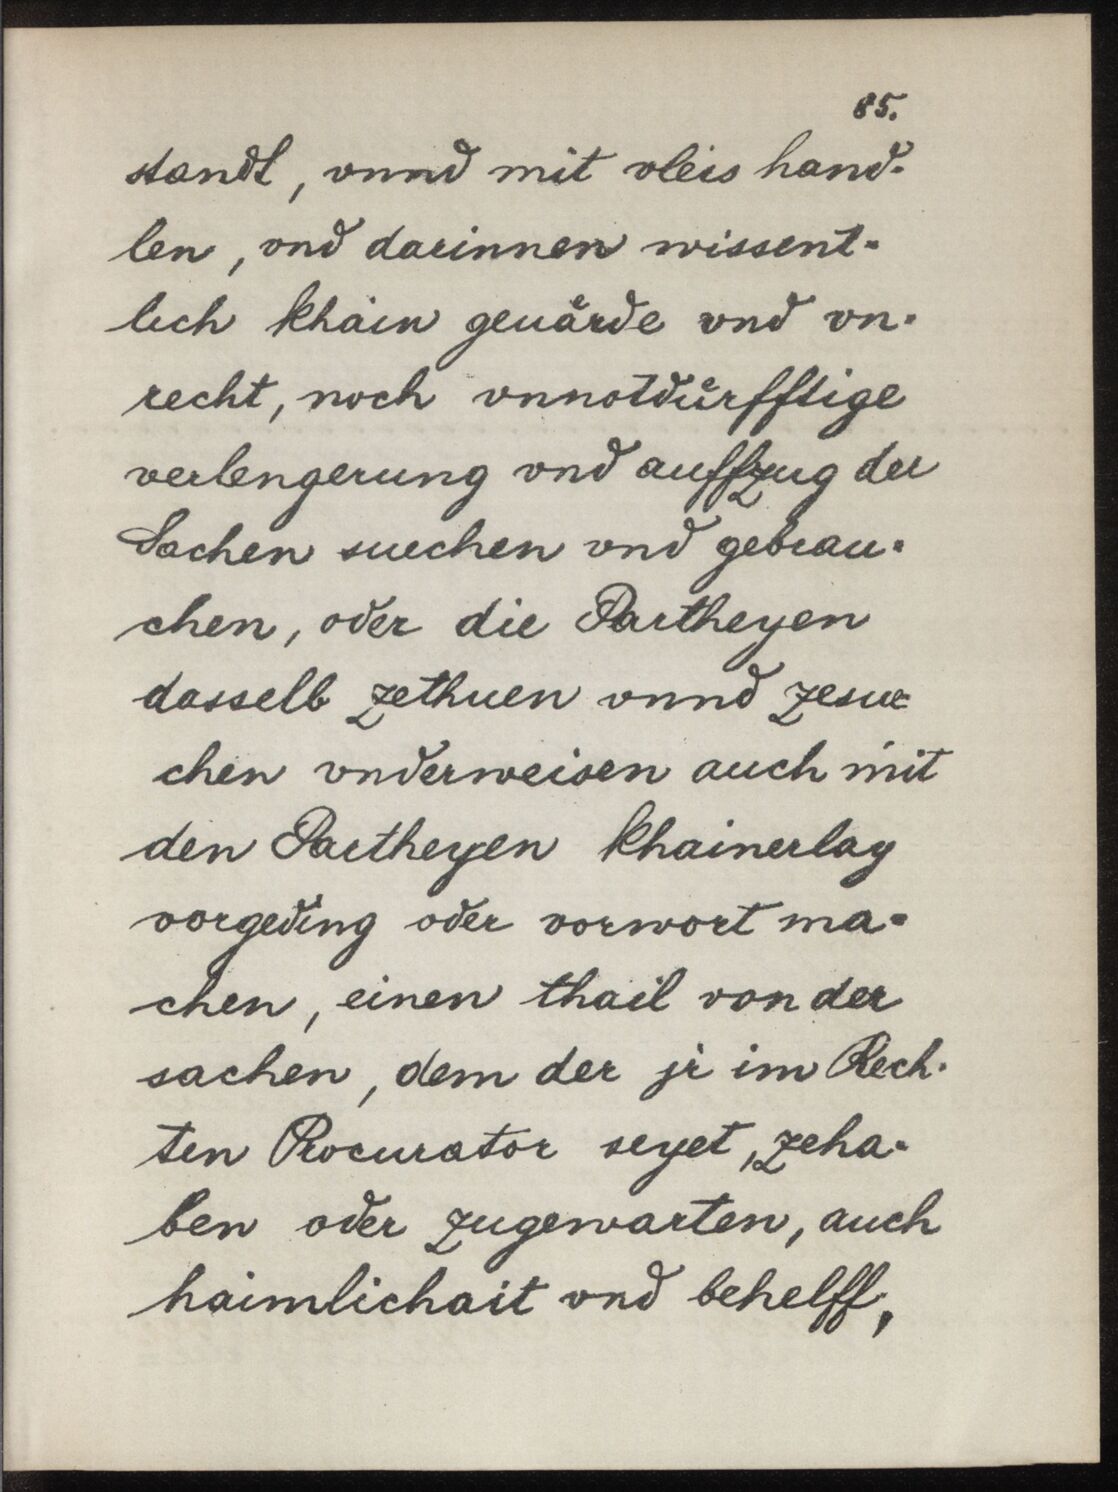 85.
standt, vnnd mit vleis hand-
len, vnd darinnen wissent-
lich khain geuärde vnd vn-
recht, noch vnnotdürfftige
verlengerung vnd auffzug der
Sachen suechen vnd gebrau-
chen, oder die Partheyen
dasselb zethuen vnnd zesue-
chen vnderweisen auch mit
den Partheyen khainerlay
vorgeding oder vorwort ma-
chen, einen thail von der
sachen, dem der jr im Rech-
ten Procurator seyet, zeha-
ben oder zugewarten, auch
haimlichait vnd behelff,